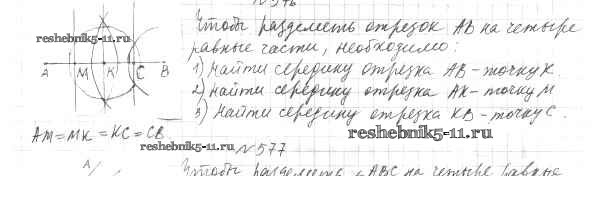 №576
Чтобы разделить отрезок AB на четыре
равные части, необходимо:
1) Найти середину отрезка AB - точку K.
2) Найти середину отрезка AK - точку M
3) Найти середину отрезка KB - точку C.
reshebnik5-11.ru
A M K C B
AM = MK = KC = CB.
reshebnik5-11.ru
reshebnik5-11.ru
№577
A
Чтобы разделить ∠ABC на четыре равные